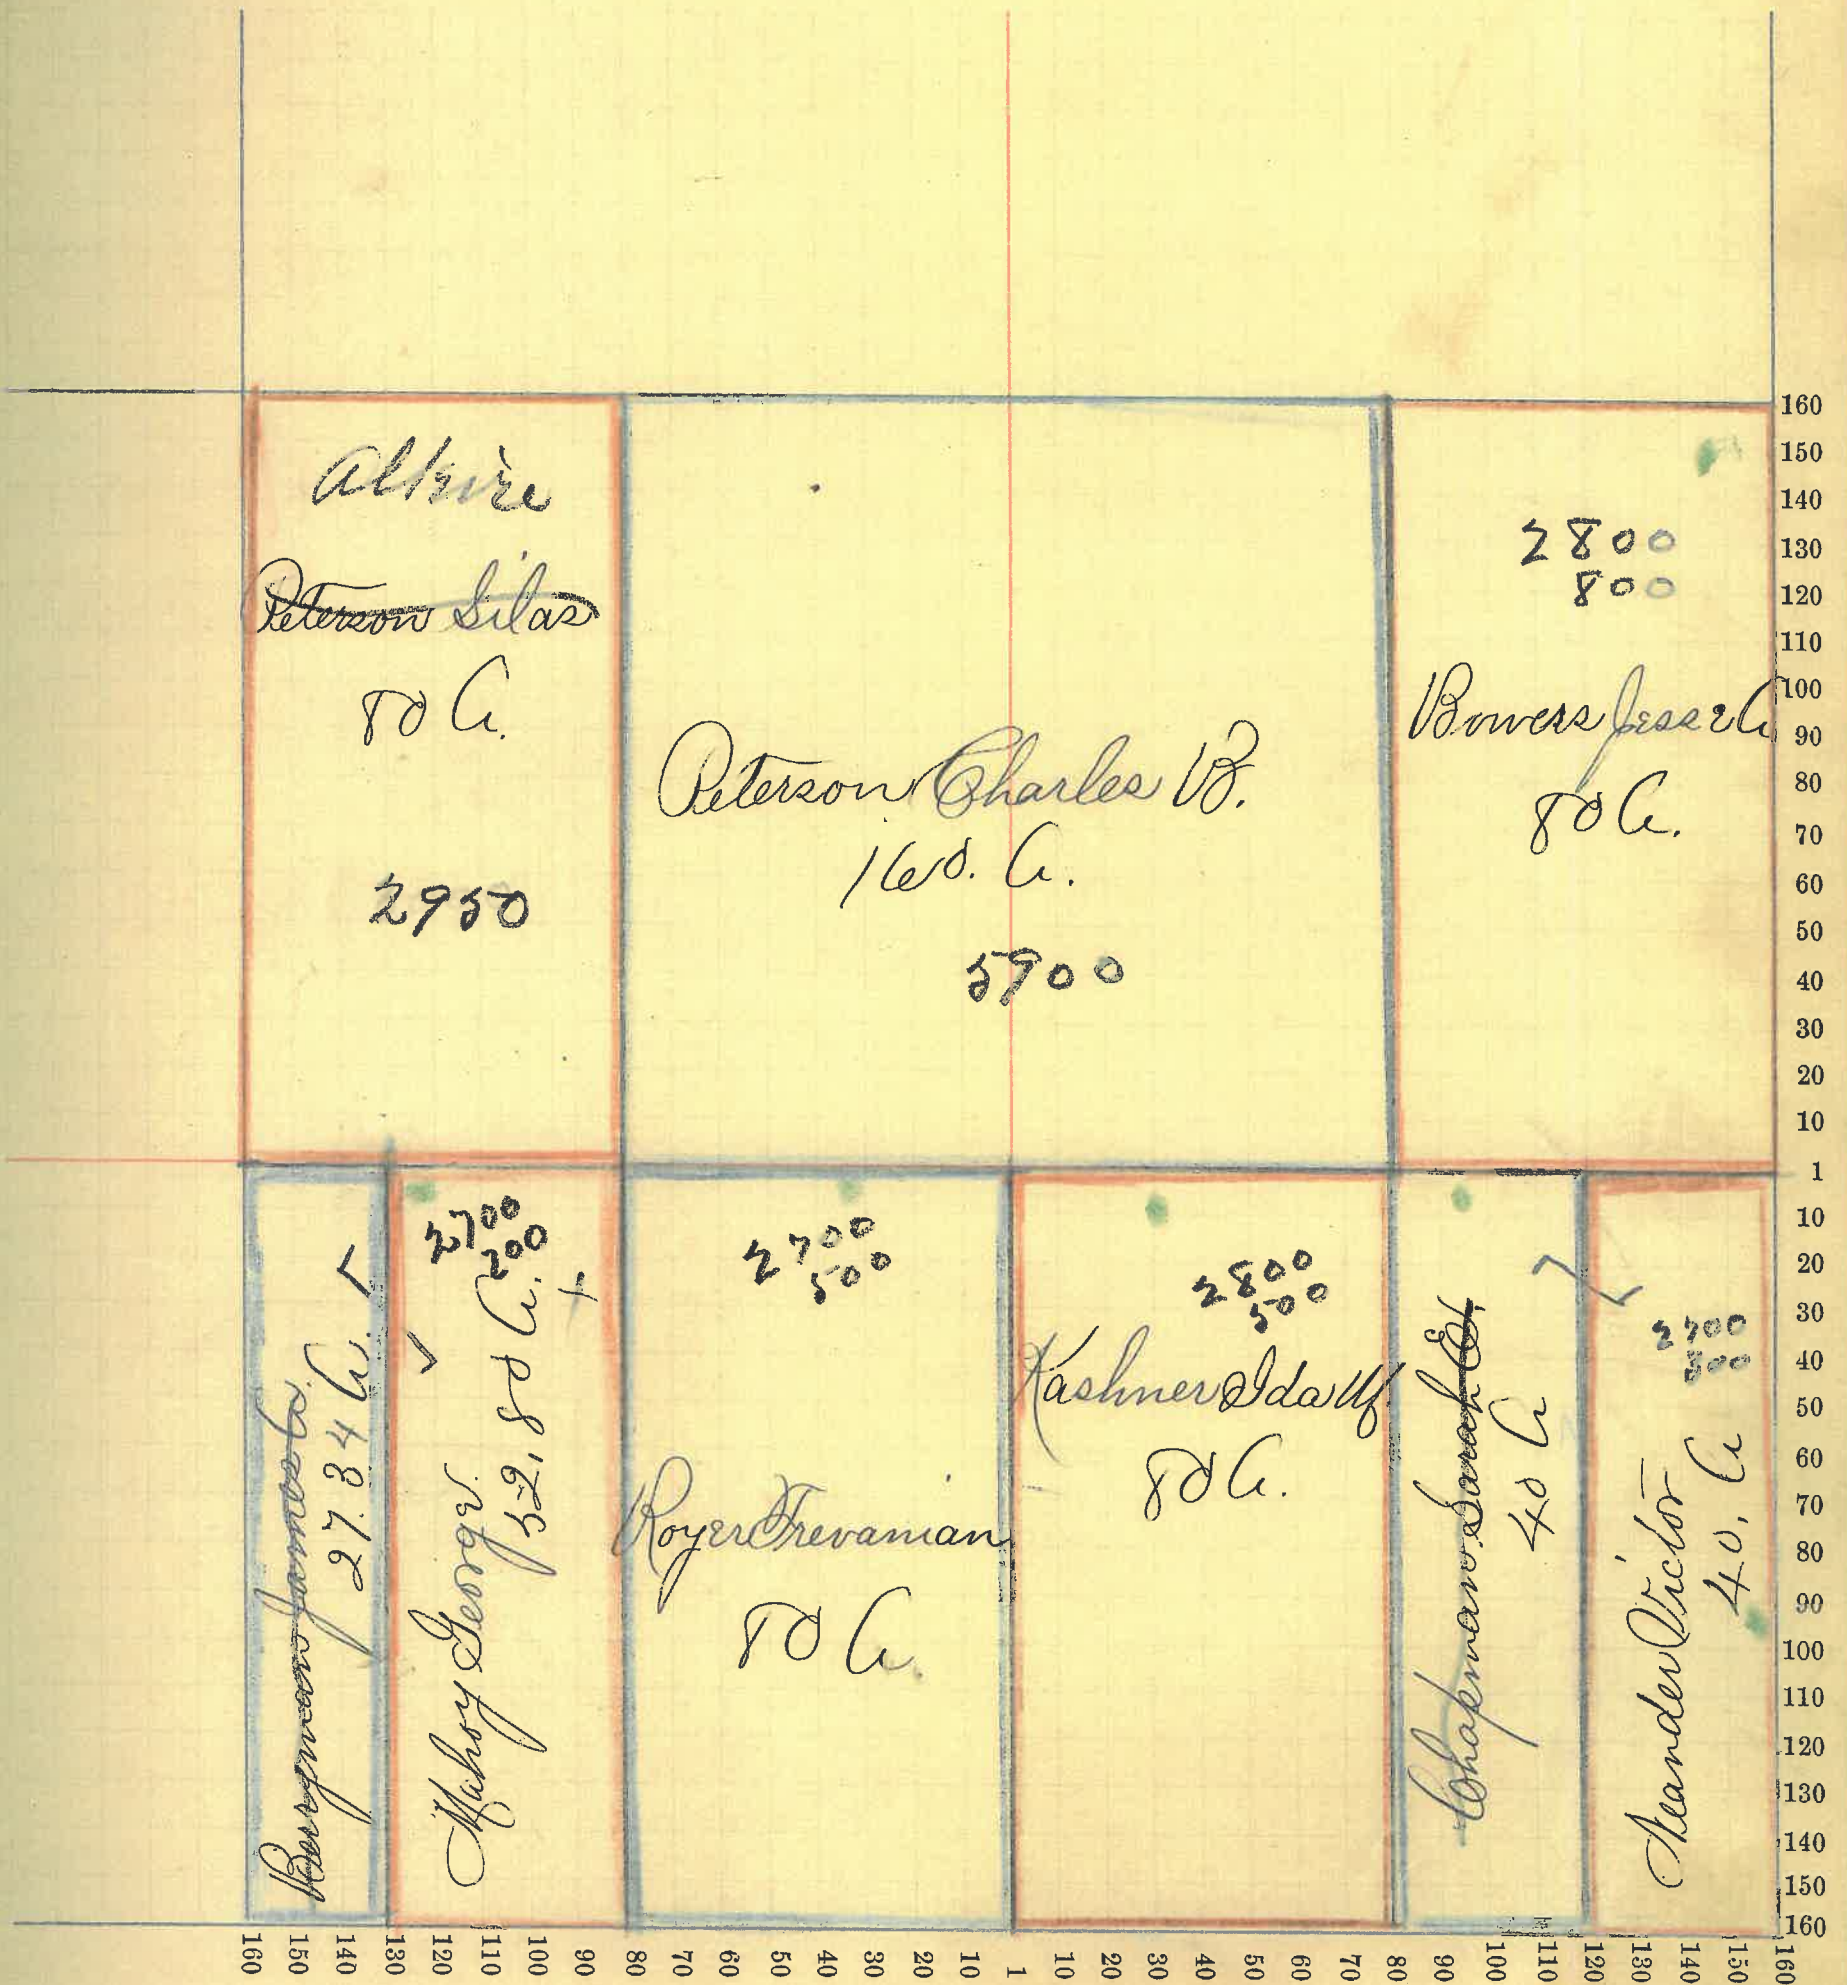 Peterson Silas
80 A.
2950
Peterson Charles B.
160. A.
5900
2800
800
Bowers Jesse A
80 A.
160
150
140
130
120
110
100
90
80
70
60
50
40
30
20
10
1
10
20
30
40
50
60
70
80
90
100
110
120
130
140
150
160
Berryman James A.
27.34 A.
2700
200
Mahoy George
52,80 A.
2700
500
Royer Trevanian
80 A.
2800
500
Kashner Ida M.
80 A.
Chapman Sarah
40 A
2700
800
Neander Victor
40. A
160
150
140
130
120
110
100
90
80
70
60
50
40
30
20
10
1
10
20
30
40
50
60
70
80
90
100
110
120
130
140
150
160